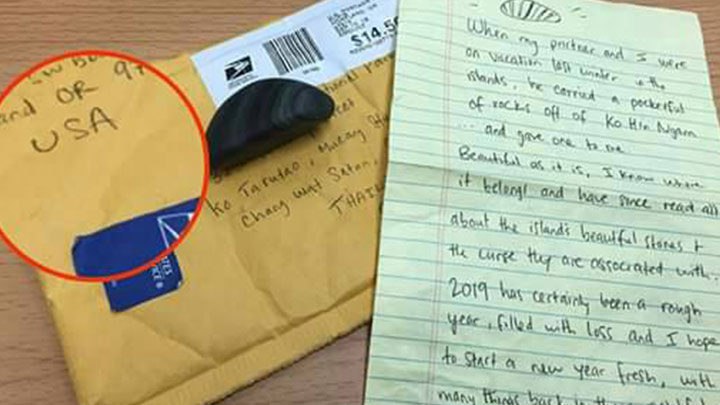 and OR 97
USA
$14.50
Ko Tarutao, Mueang
Chang Wat Satun,
THAIL
When my partner and I were
on vacation last winter + the
islands, he carried a pocketful
of rocks off of Ko Hin Ngam
... and gave one to me
Beautiful as it is, I know where
it belongs and have since read all
about the island's beautiful stones +
the curse they are associated with.
2019 has certainly been a rough
year, filled with loss and I hope
to start a new year fresh, with
many things back in